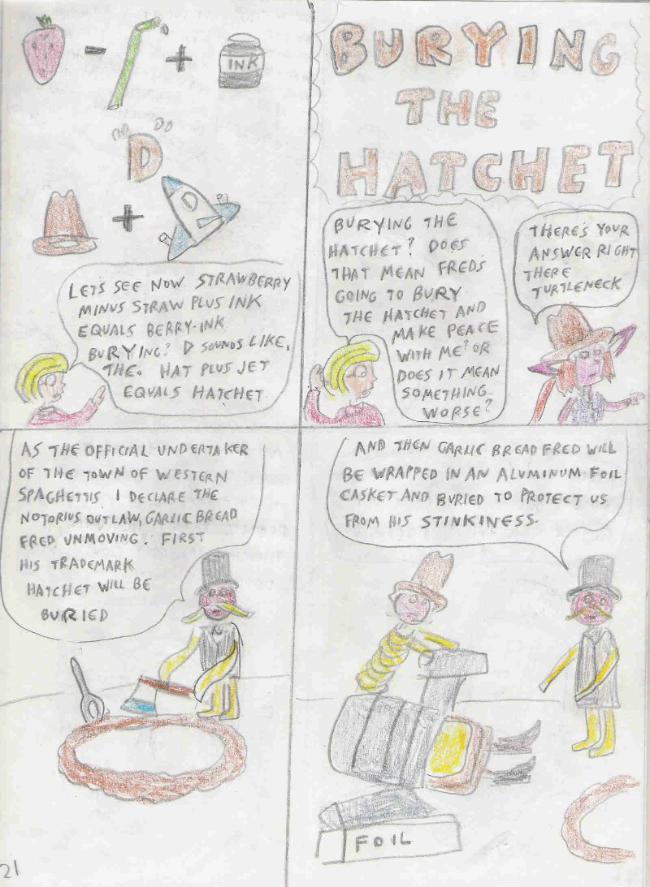 INK
D
D
LETS SEE NOW STRAWBERRY
MINUS STRAW PLUS INK
EQUALS BERRY-INK
BURYING? D SOUNDS LIKE,
THE. HAT PLUS JET
EQUALS HATCHET
BURYING
THE
HATCHET
BURYING THE
HATCHET? DOES
THAT MEAN FREDS
GOING TO BURY
THE HATCHET AND
MAKE PEACE
WITH ME? OR
DOES IT MEAN
SOMETHING
WORSE?
THERE'S YOUR
ANSWER RIGHT
THERE
TURTLENECK
AS THE OFFICIAL UNDERTAKER
OF THE TOWN OF WESTERN
SPAGHETTIS I DECLARE THE
NOTORIUS OUTLAW, GARLIC BREAD
FRED UNMOVING. FIRST
HIS TRADEMARK
HATCHET WILL BE
BURIED
AND THEN GARLIC BREAD FRED WILL
BE WRAPPED IN AN ALUMINUM FOIL
CASKET AND BURIED TO PROTECT US
FROM HIS STINKINESS.
FOIL
21